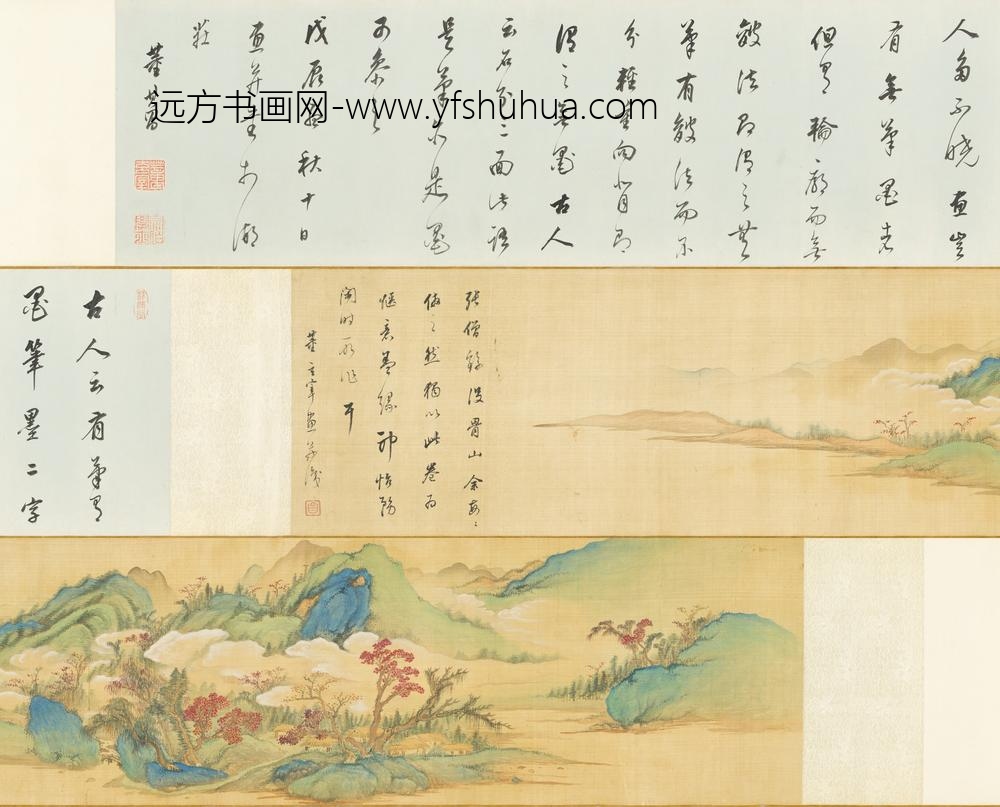 人多不曉畫豈
有無筆墨者
但有輪廓而無
皴法即謂之無
筆有皴法而不
分輕重向背即
謂之無墨古人
云石分三面此語
是筆亦是墨
可參之
戊辰秋十日
畫并書于湖
莊
董其昌
远方书画网-www.yfshuhua.com
張僧繇沒骨山余每每
倣之然猶以此卷為
愜意蓋緣神怡務
閒時一所作耳
董玄宰畫并識
古人云有筆有
墨筆墨二字